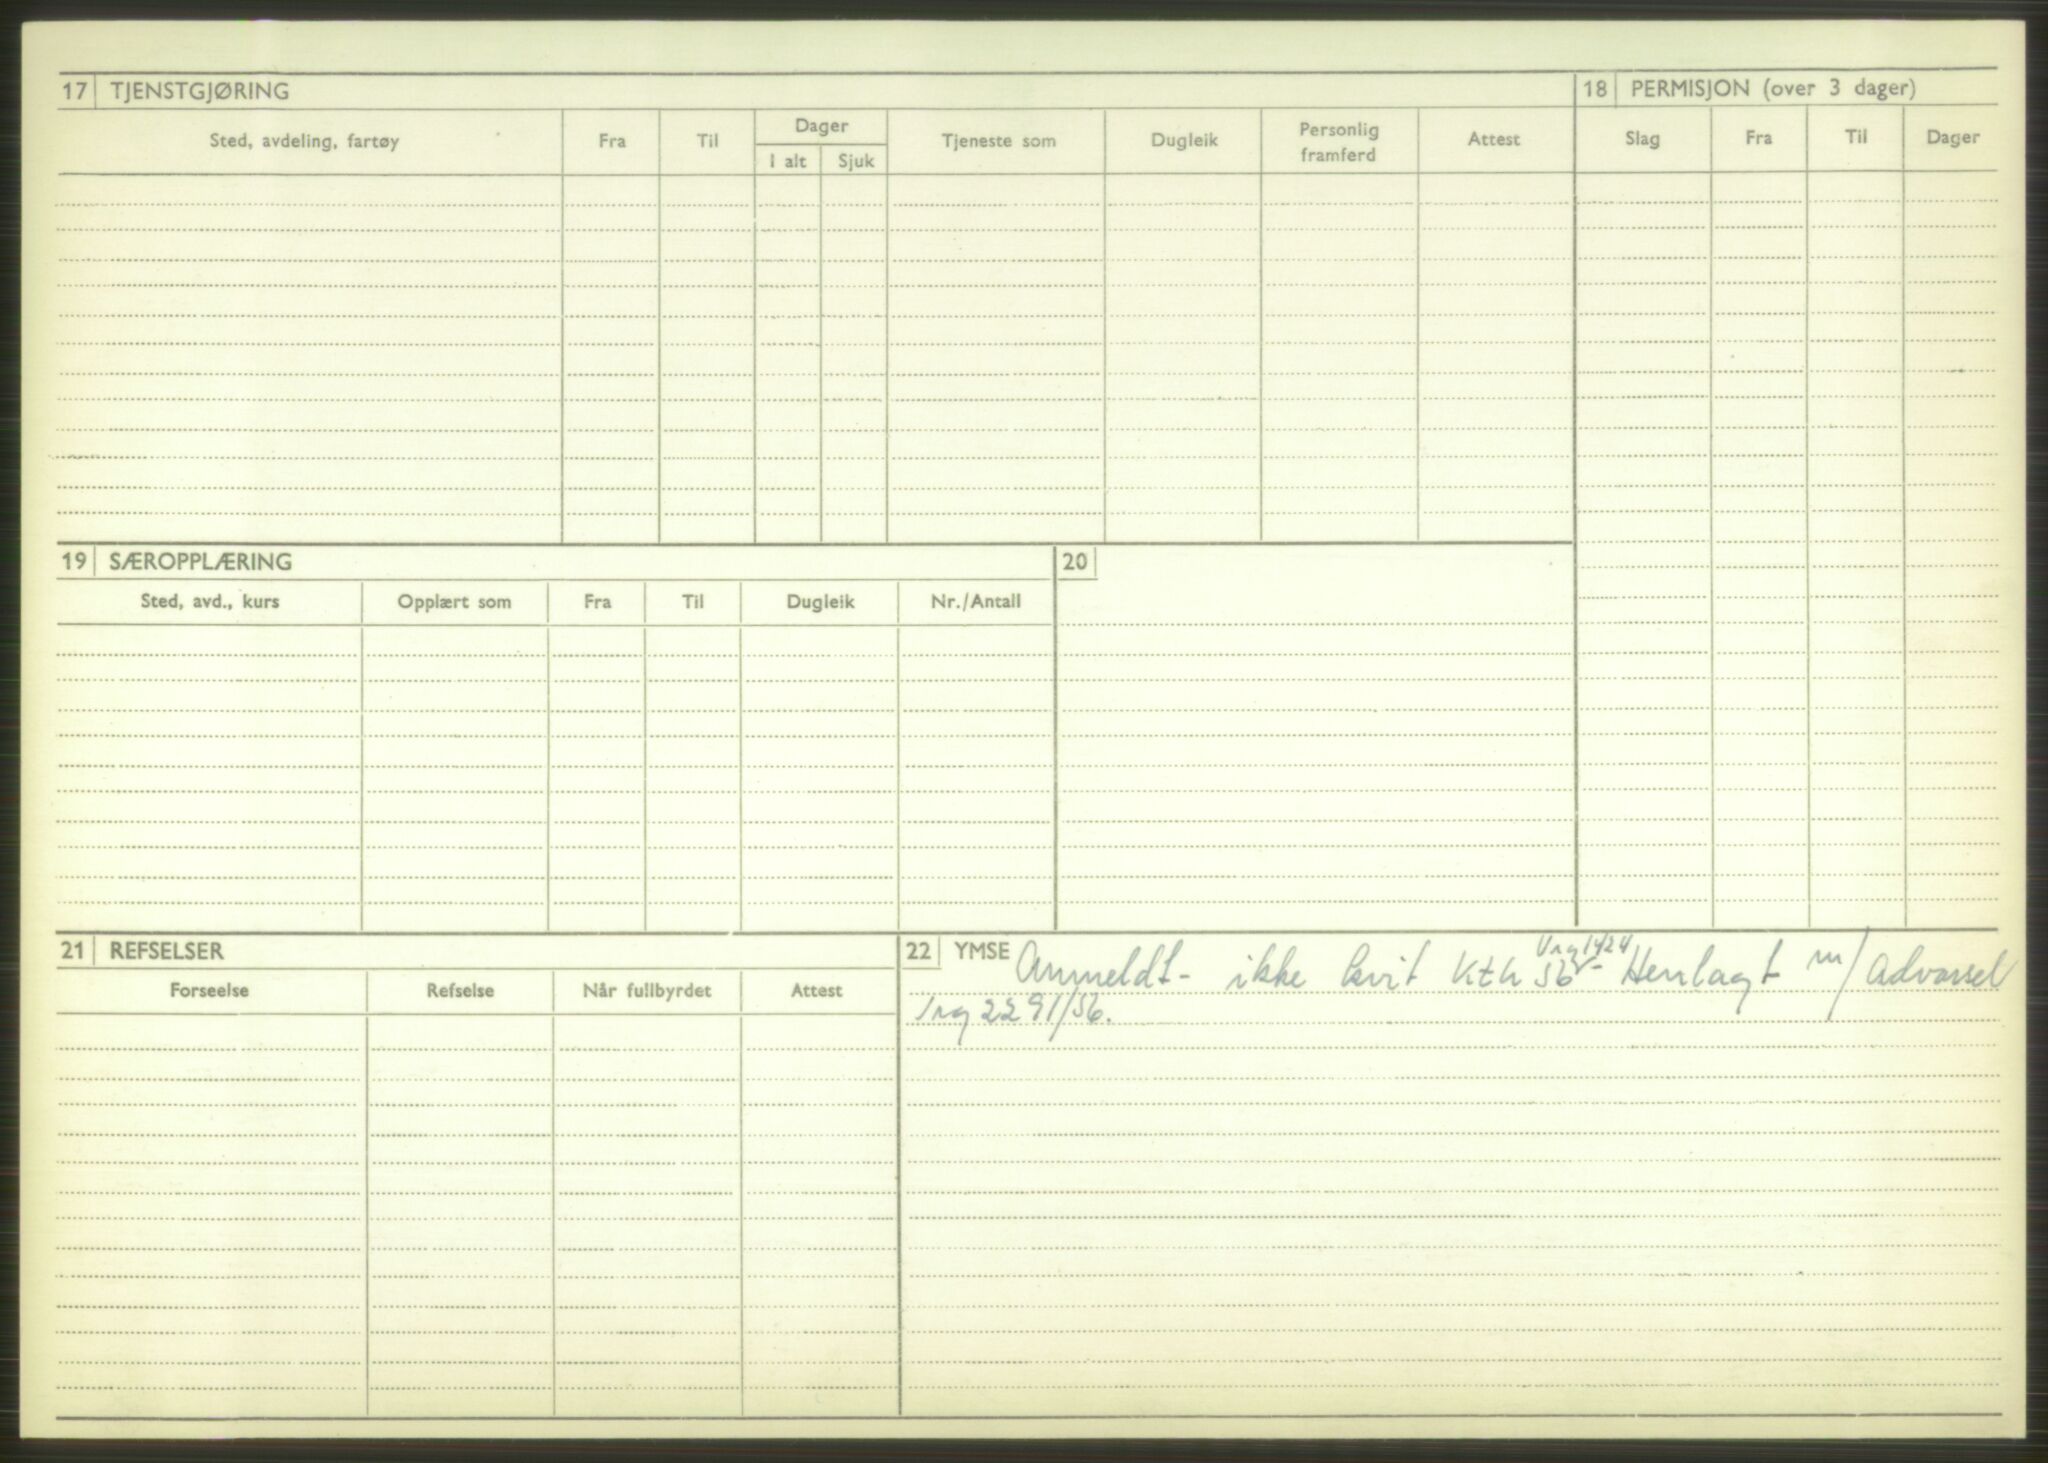 17 TJENSTGJØRING
Sted, avdeling, fartøy Fra Til Dager Tjeneste som Dugleik Personlig framferd Attest
I alt Sjuk
18 PERMISJON (over 3 dager)
Slag Fra Til Dager
19 SÆROPPLÆRING
Sted, avd., kurs Opplært som Fra Til Dugleik Nr./Antall
20
21 REFSELSER
Forseelse Refselse Når fullbyrdet Attest
22 YMSE Anmeldt - ikke kvit 56 - Henlagt m/ Advarsel
2291/56.